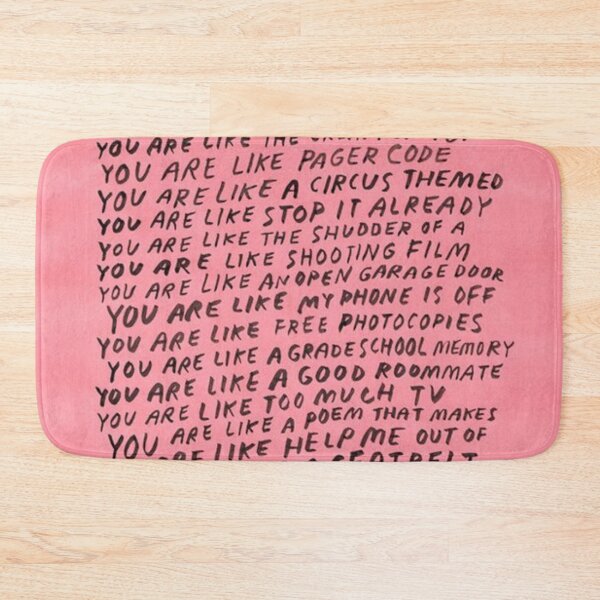 YOU ARE LIKE THE
YOU ARE LIKE PAGER CODE
YOU ARE LIKE A CIRCUS THEMED
YOU ARE LIKE STOP IT ALREADY
YOU ARE LIKE THE SHUDDER OF A
YOU ARE LIKE SHOOTING FILM
YOU ARE LIKE AN OPEN GARAGE DOOR
YOU ARE LIKE MY PHONE IS OFF
YOU ARE LIKE FREE PHOTOCOPIES
YOU ARE LIKE A GRADESCHOOL MEMORY
YOU ARE LIKE A GOOD ROOMMATE
YOU ARE LIKE TOO MUCH TV
YOU ARE LIKE A POEM THAT MAKES
YOU ARE LIKE HELP ME OUT OF
ARE LIKE SEATBELT